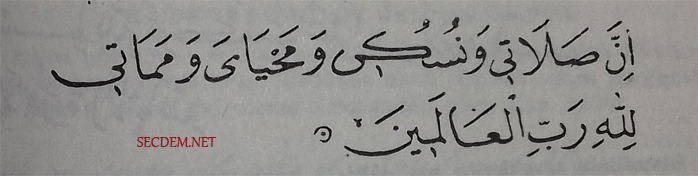 اِنَّ صَلَاتِي وَنُسُكِي وَمَحْيَايَ وَمَمَاتِي
لِلّٰهِ رَبِّ الْعَالَمِينَ ۝
SECDEM.NET